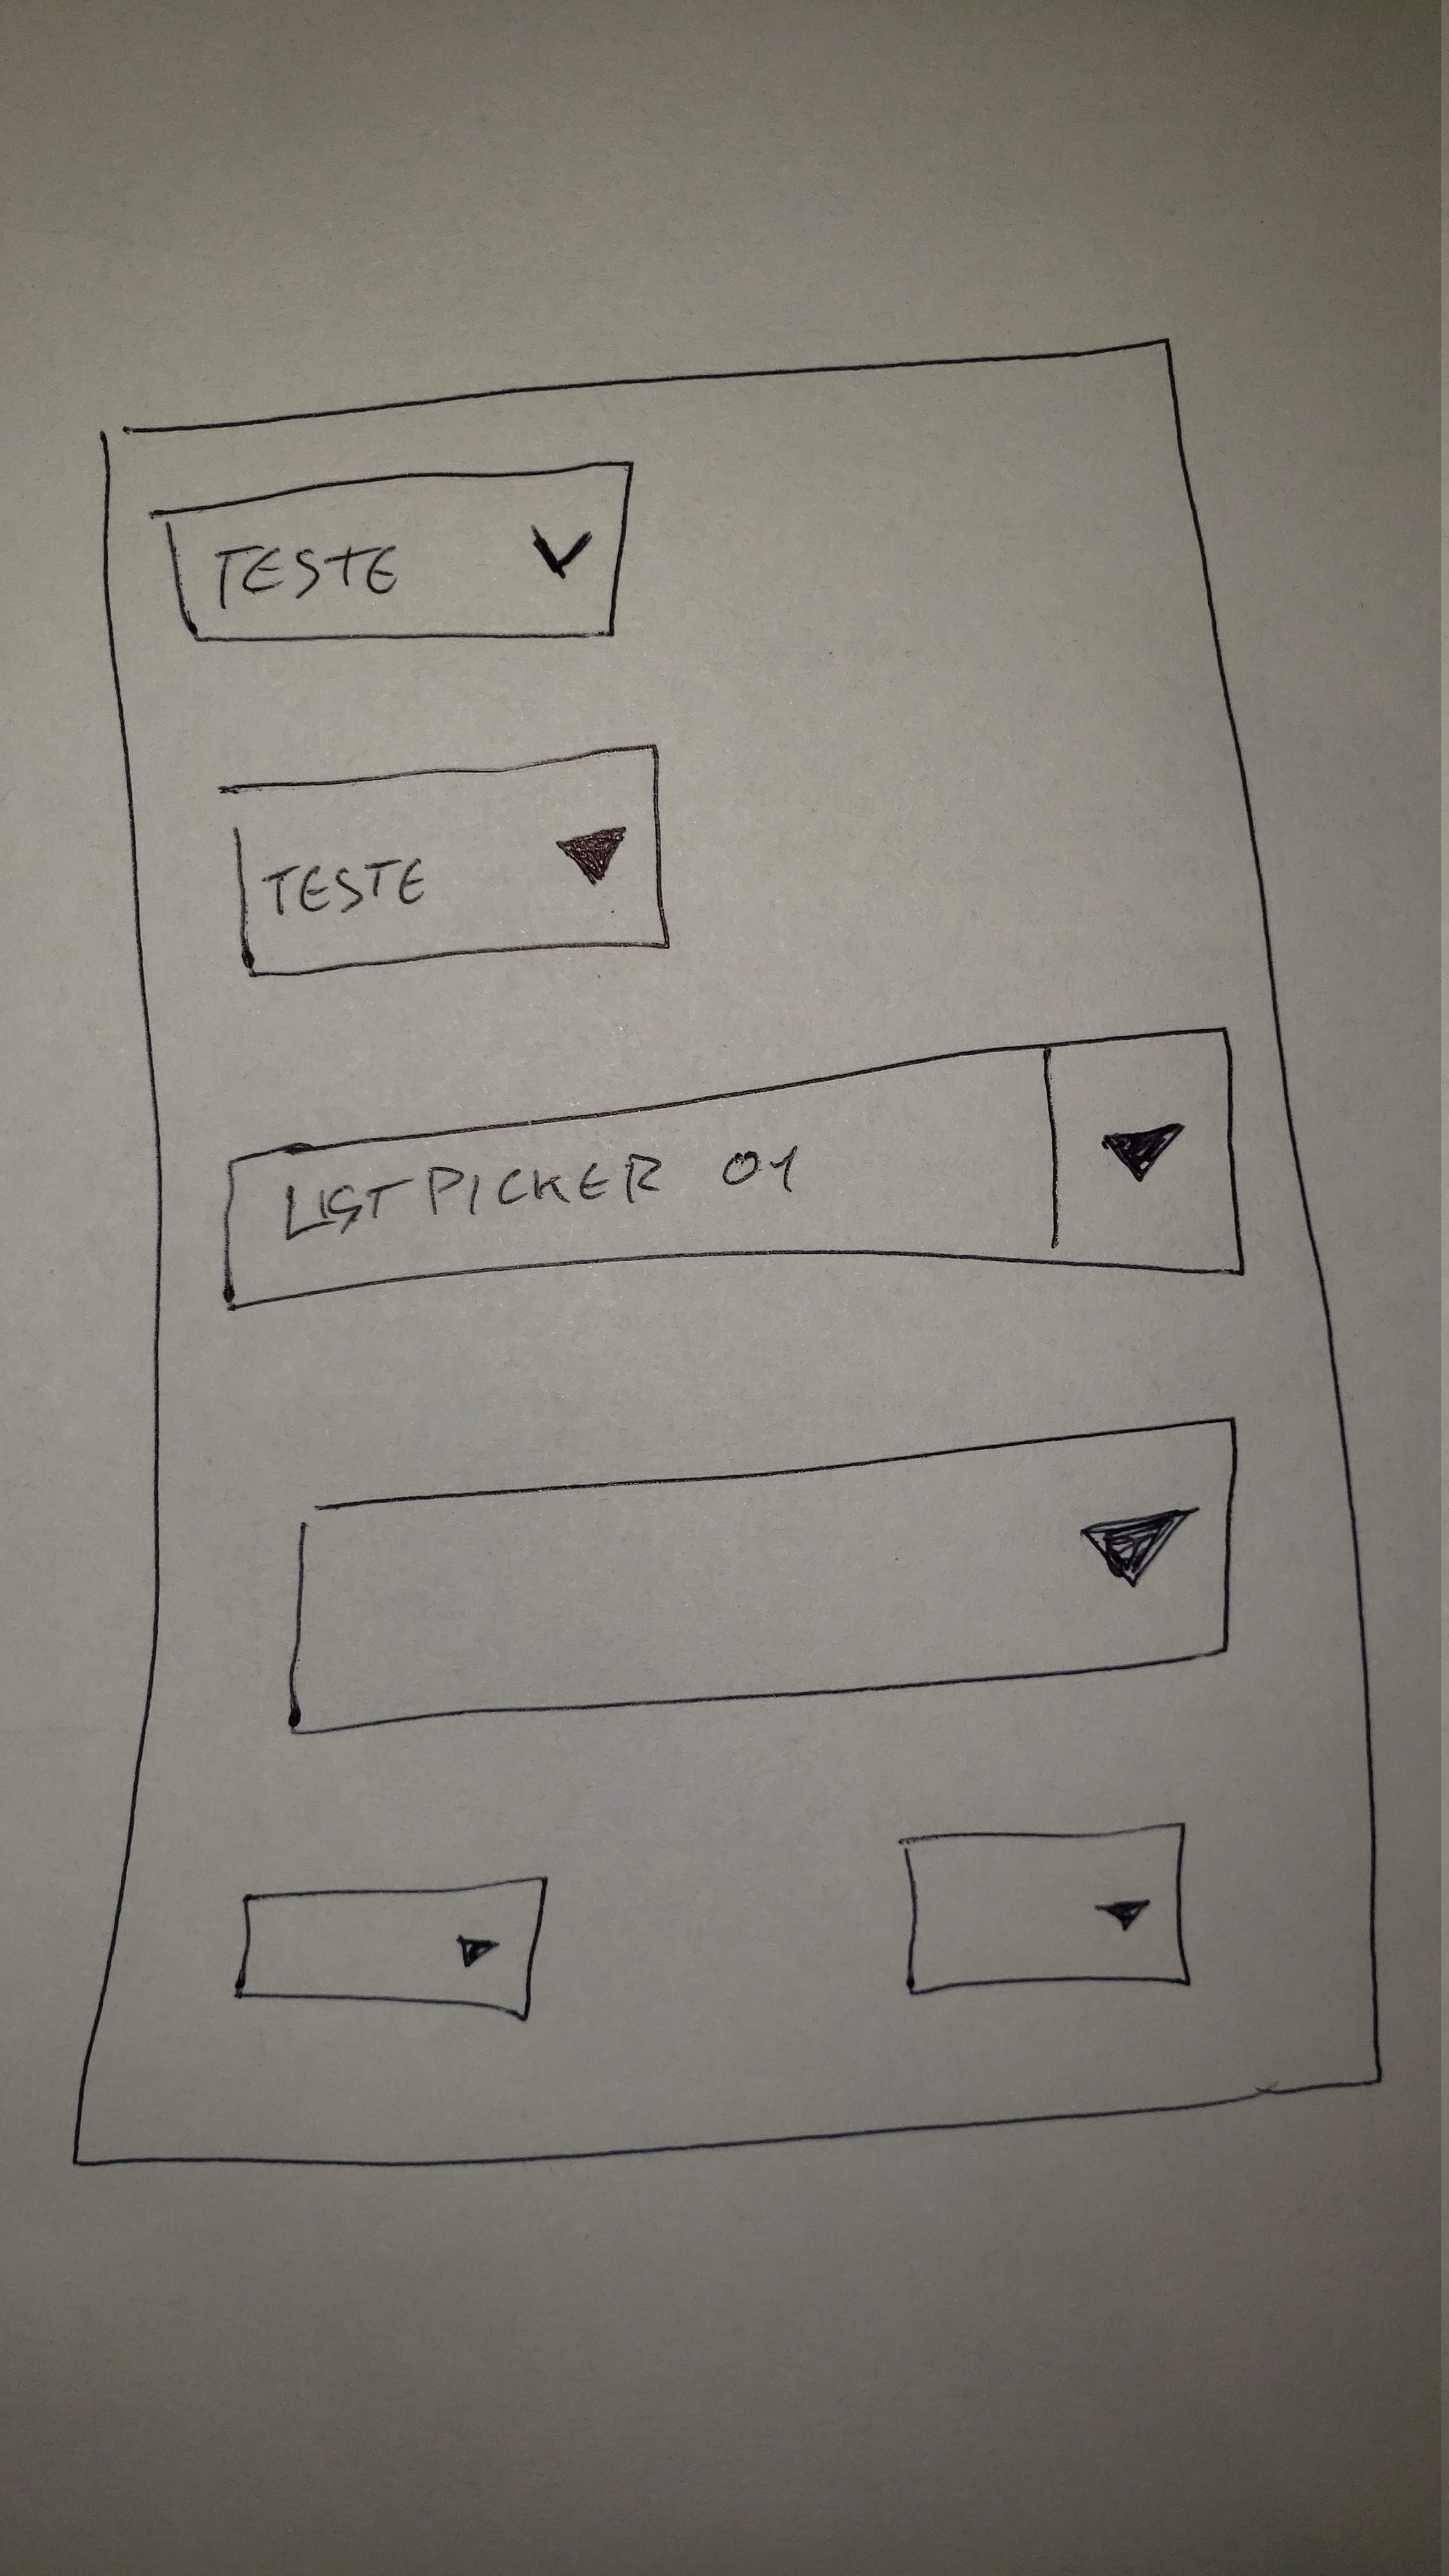 TESTE
TESTE
LISTPICKER 01